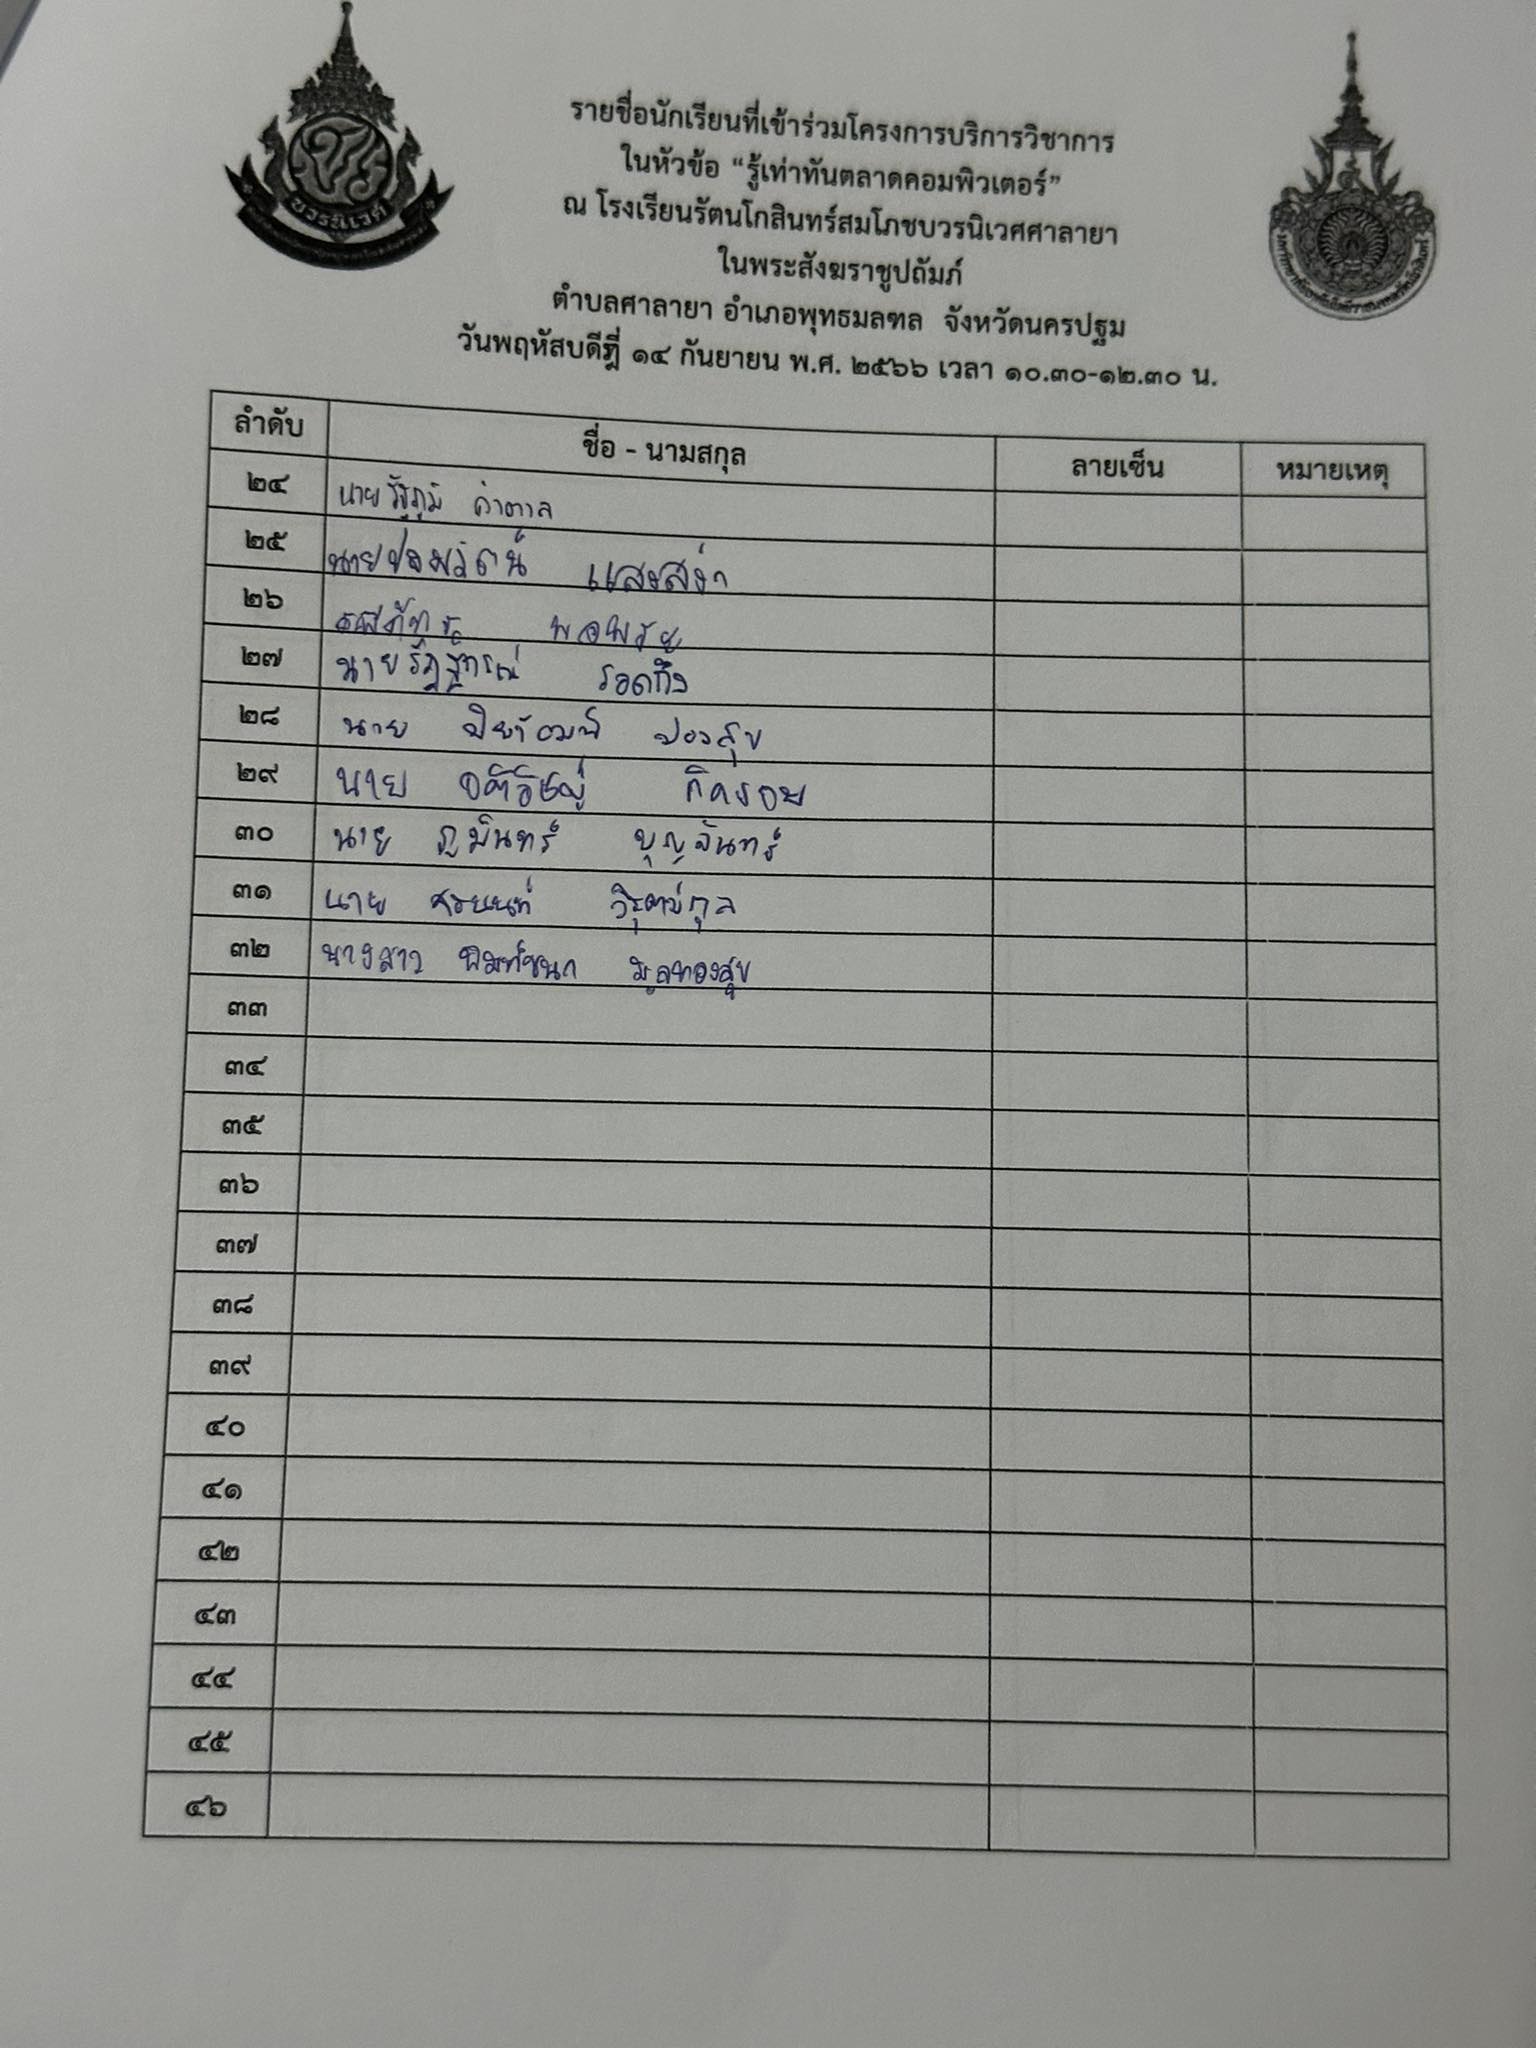 บวรนิเวศ
รายชื่อนักเรียนที่เข้าร่วมโครงการบริการวิชาการ
ในหัวข้อ “รู้เท่าทันตลาดคอมพิวเตอร์”
ณ โรงเรียนรัตนโกสินทร์สมโภชบวรนิเวศศาลายา
ในพระสังฆราชูปถัมภ์
ตำบลศาลายา อำเภอพุทธมลฑล จังหวัดนครปฐม
วันพฤหัสบดีที่ ๑๔ กันยายน พ.ศ. ๒๕๖๖ เวลา ๑๐.๓๐-๑๒.๓๐ น.
ลำดับ ชื่อ - นามสกุล ลายเซ็น หมายเหตุ
๒๔ นายรัฐภูมิ คำตาล
๒๕ แสงสง่า
๒๖
๒๗ นาย รอดกั๊ง
๒๘ นาย
๒๙ นาย
๓๐ นาย ภูมินทร์ บุญจันทร์
๓๑ นาย
๓๒ นางสาว พิมพ์ชนก มูลทองสุข
๓๓
๓๔
๓๕
๓๖
๓๗
๓๘
๓๙
๔๐
๔๑
๔๒
๔๓
๔๔
๔๕
๔๖